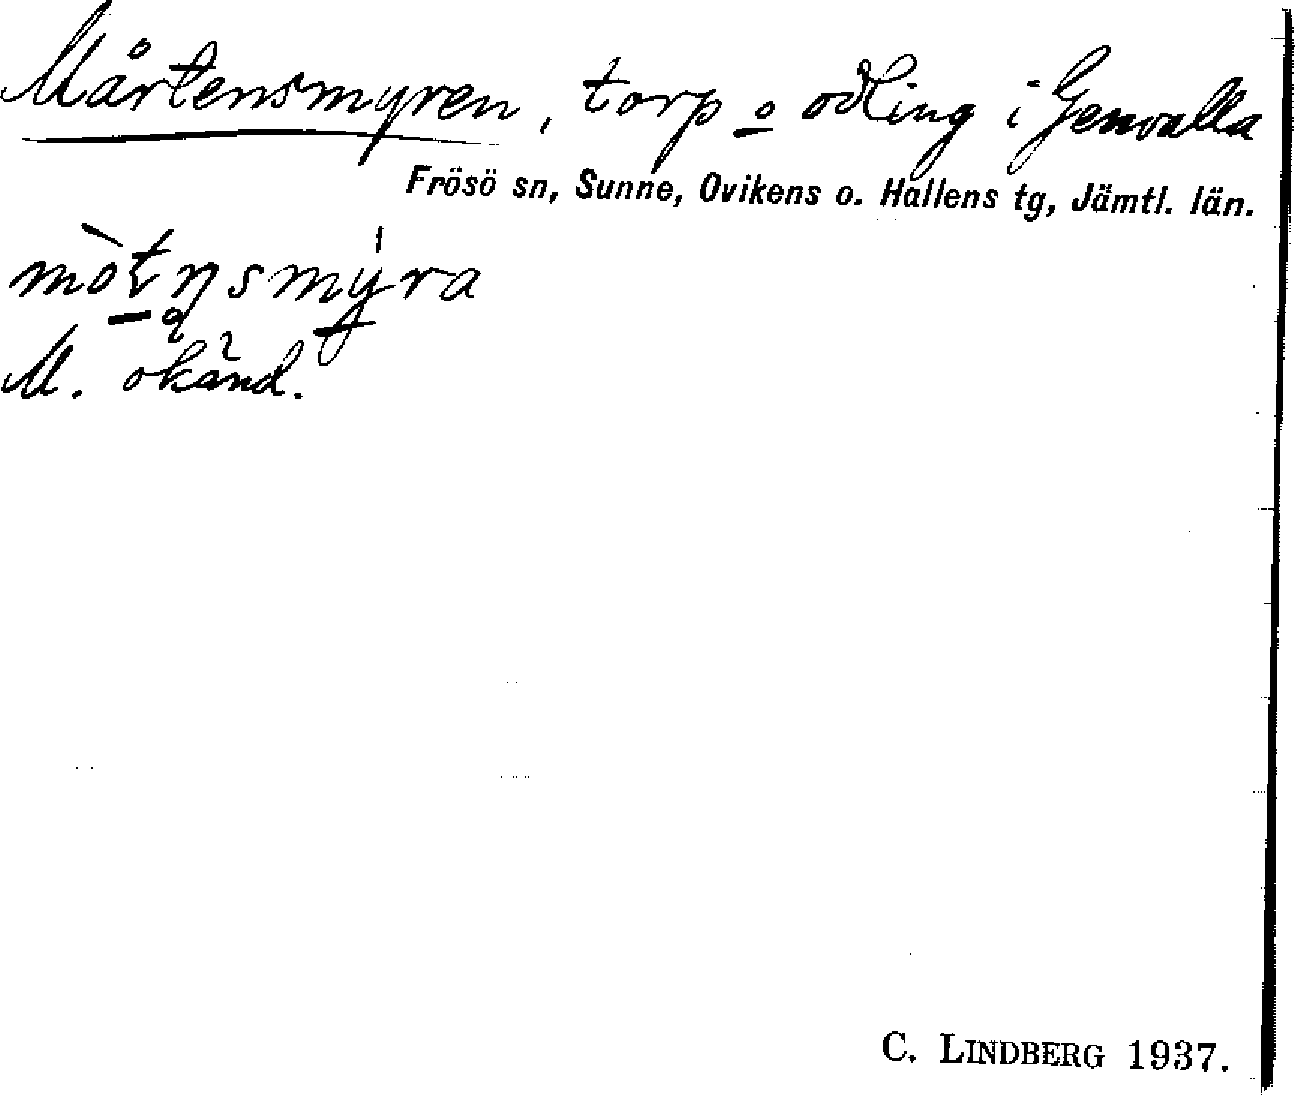 Mårtensmyren, torp o odling i Genvalla
Frösö sn, Sunne, Ovikens o. Hallens tg, Jämtl. län.
M. okänd.
C. LINDBERG 1937.